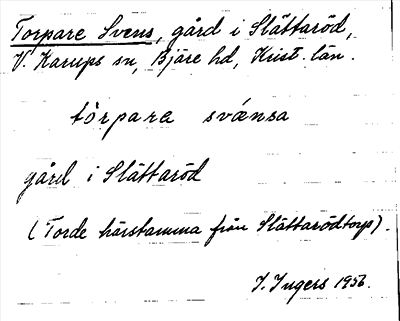 Torpare Svens, gård i Slättaröd,
V. Karups sn, Bjäre hd, Krist. län.
tȯrpara svǽnsa
gård i Slättaröd
(Torde härstamma från Slättarödtorp).
I. Ingers 1956.